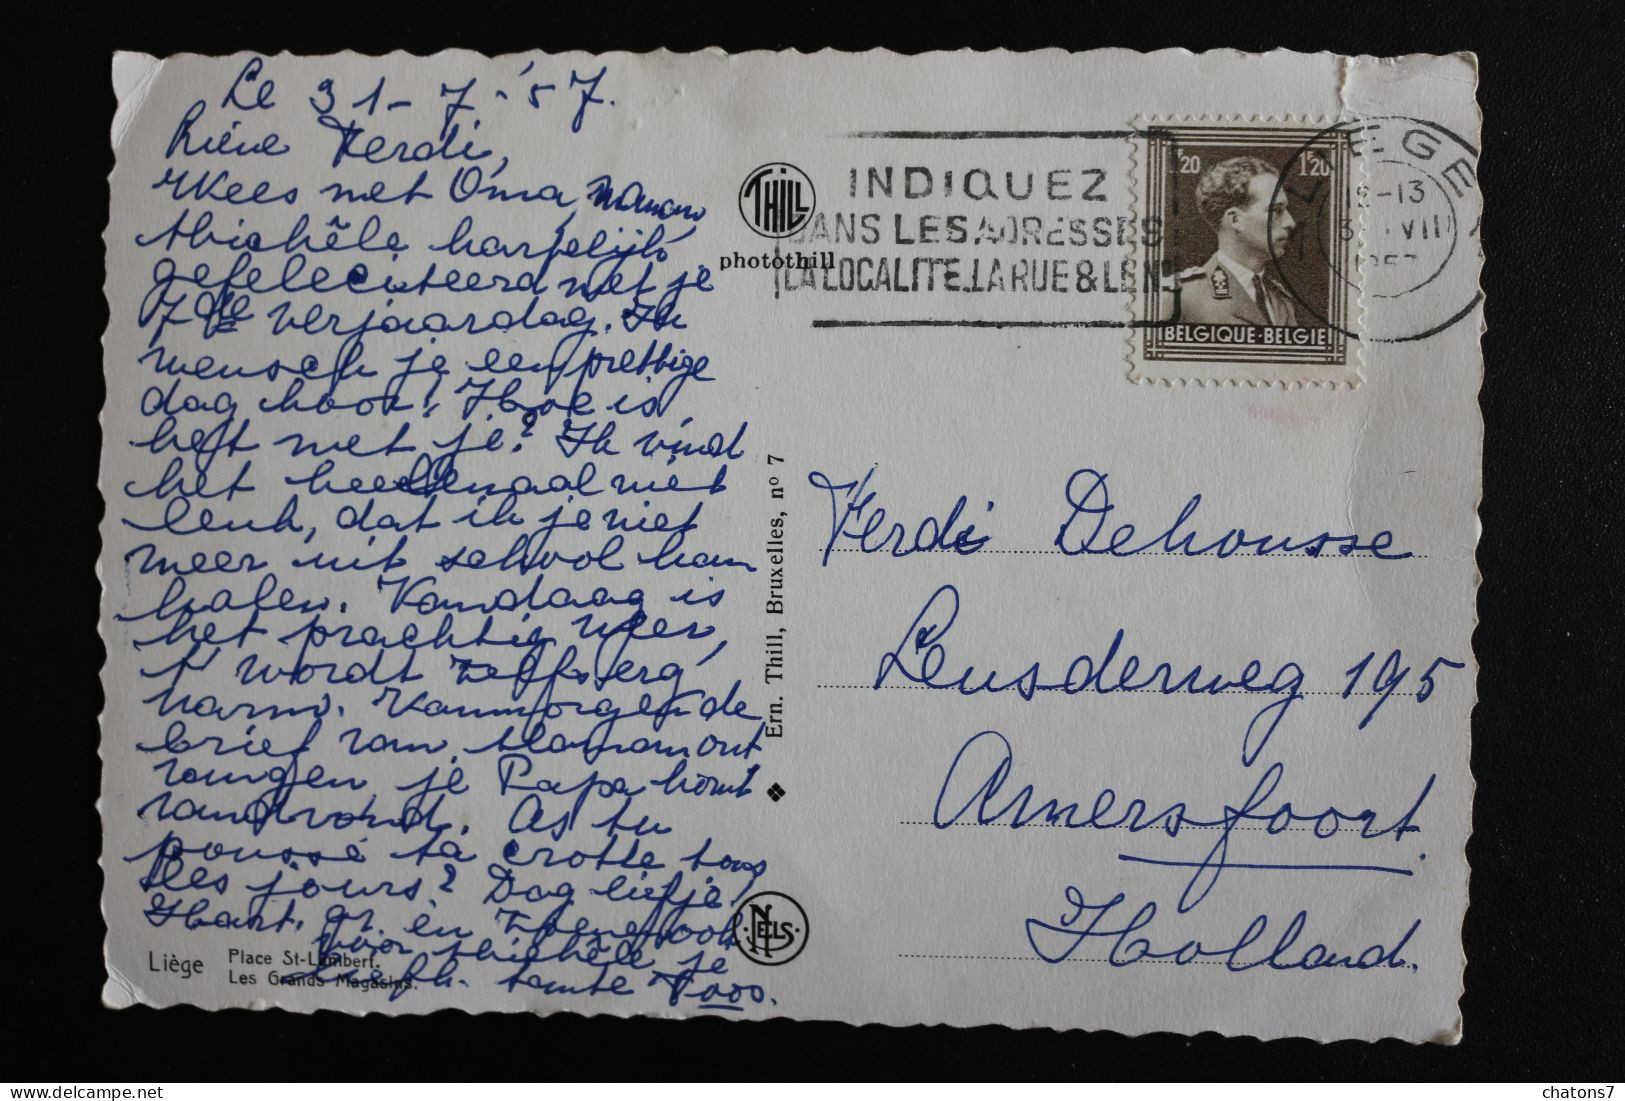 Le 31-7-'57.
Lieve Ferdi,
Wees met Oma, Maman,
Michèle hartelijk
gefeleciteerd met je
7de verjaardag. Ik
wensch je een prettige
dag hoor! Hoe is
het met je? Ik vind
het heelemaal niet
leuk, dat ik je niet
meer uit school kan
halen. Vandaag is
het prachtig weer,
't wordt zelfs erg
warm. Vanmorgen de
brief van Maman ont
vangen, je Papa komt
vanavond. As tu
poussé ta crotte tous
les jours? Dag liefje.
Hart. gr. en zoenen ook
voor Michèle je
liefh. tante Toos.
Liège Place St-Lambert.
Les Grands Magasins.
THILL
photothill
Ern. Thill, Bruxelles, nº 7
NELS
INDIQUEZ
DANS LES ADRESSES
LA LOCALITE, LA RUE & LE Nº
1.20 1.20
BELGIQUE·BELGIE
LIEGE
-13
VII
1957
Ferdi Dehousse
Leusderweg 195
Amersfoort.
Holland.
chatons7